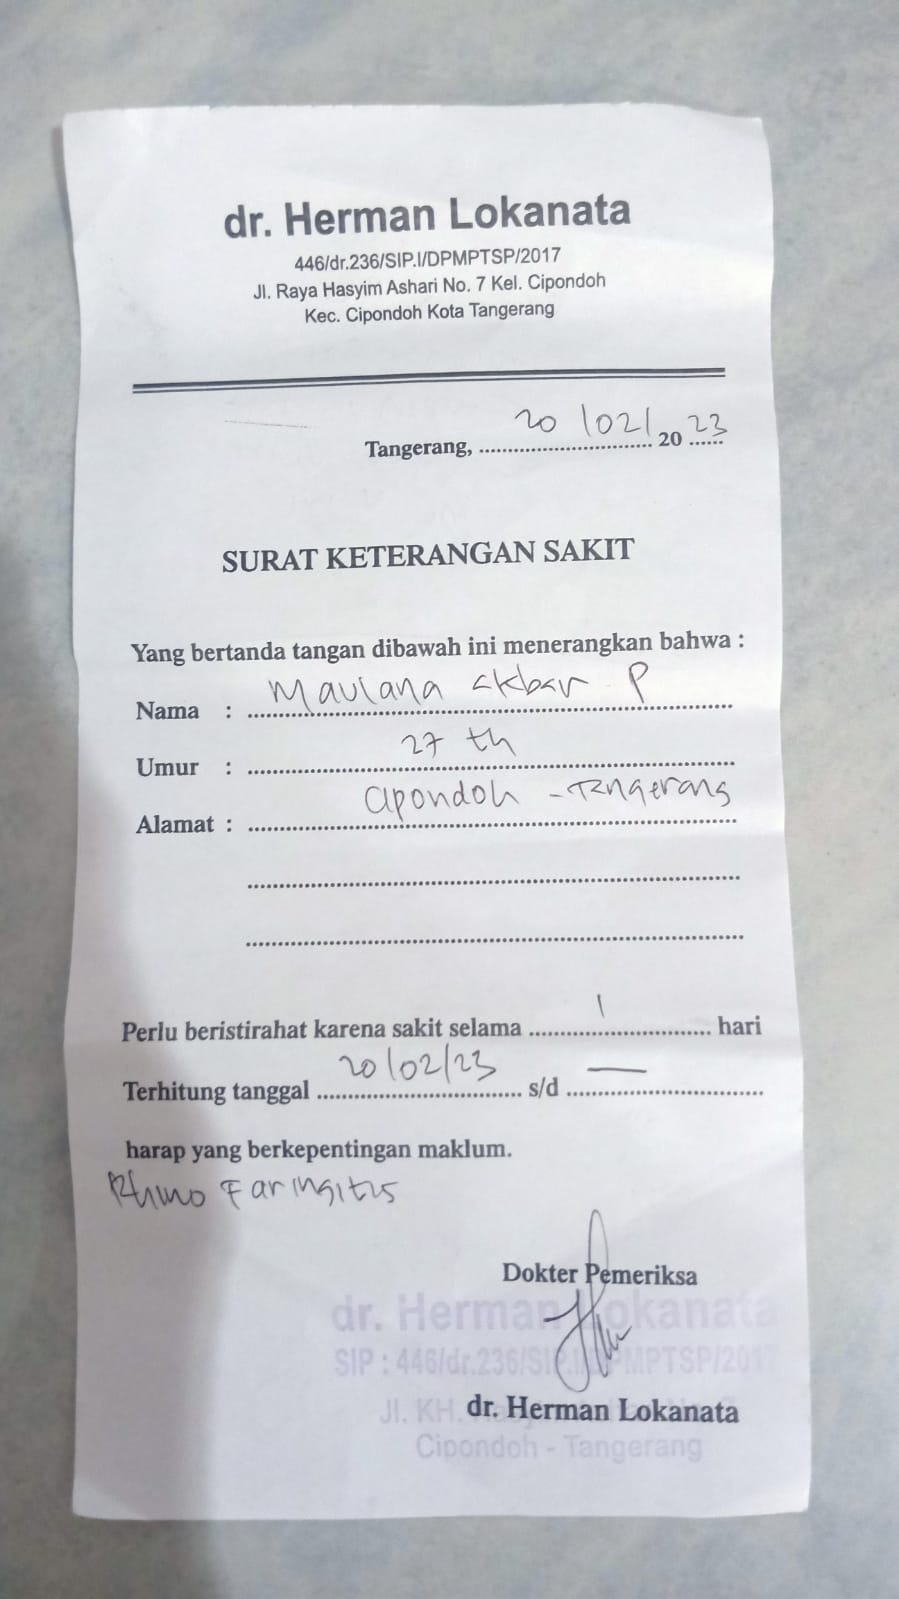 dr. Herman Lokanata
446/dr.236/SIP.I/DPMPTSP/2017
Jl. Raya Hasyim Ashari No. 7 Kel. Cipondoh
Kec. Cipondoh Kota Tangerang
Tangerang, 20/02/ 20 23
SURAT KETERANGAN SAKIT
Yang bertanda tangan dibawah ini menerangkan bahwa :
Nama : Maulana Akbar P
Umur : 27 th
Alamat : Cipondoh - Tangerang
Perlu beristirahat karena sakit selama 1 hari
Terhitung tanggal 20/02/23 s/d —
harap yang berkepentingan maklum.
Rhino Faringitis
Dokter Pemeriksa
dr. Herman Lokanata
SIP : 446/dr.236/SIP.I/DPMPTSP/2017
dr. Herman Lokanata
Jl. KH.
Cipondoh - Tangerang